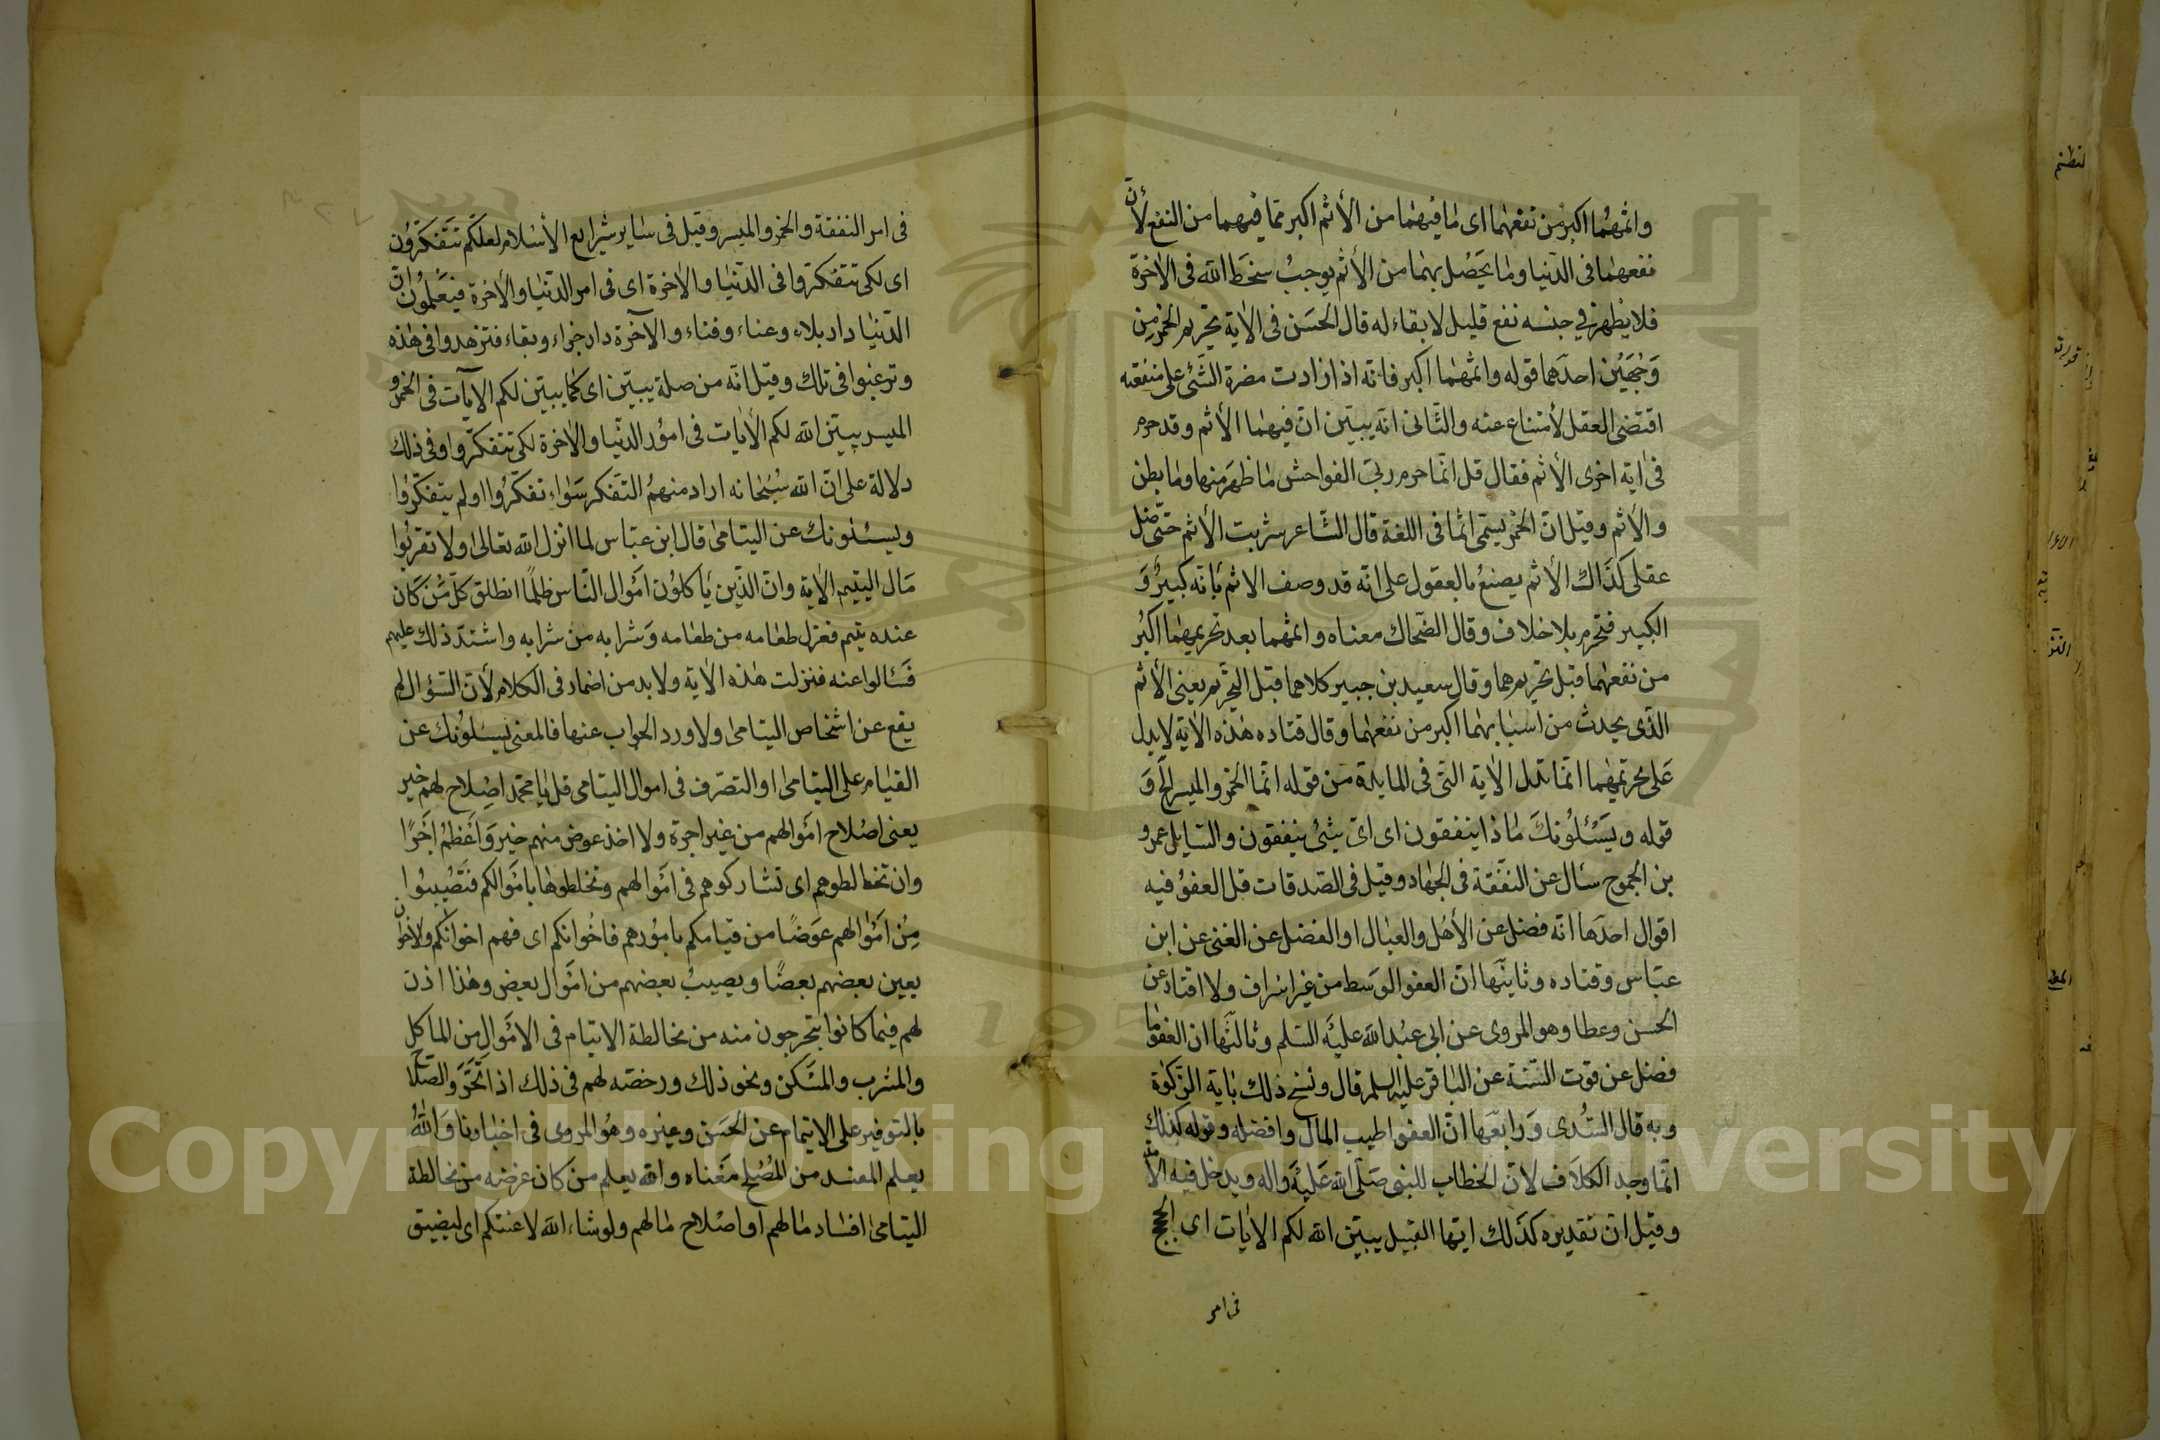 واثمهما اكبر من نفعهما اى ما فيهما من الأثم اكبر مما فيهما من النفع لأن
نفعهما فى الدنيا وما يحصل بهما من الأثم يوجب سخط الله فى الاخرة
فلا يظهر في جنبه نفع قليل لا بقاء له قال الحسن فى الاية تحريم الخمر من
وجهين احدهما قوله واثمهما اكبر فانه اذا زادت مضرة الشئى على منفعته
اقتضى العقل لأمتناع عنه والثانى انه يبين ان فيهما الأثم وقد حرم
فى اية اخرى الأثم فقال قل انما حرم ربى الفواحش ما ظهر منها وما بطن
والأثم وقيل ان الخمر يسمى اثما فى اللغة قال الشاعر شربت الأثم حتى ضل
عقلى كذاك الأثم يصنع بالعقول على انه قد وصف الاثم بانه كبير و
الكبير فتحرم بلا خلاف وقال الضحاك معناه واثمهما بعد تحريمهما اكبر
من نفعهما قبل تحريمهما وقال سعيد بن جبير كلاهما قبل التحريم يعنى الأثم
الذى يحدث من اسبابهما اكبر من نفعهما وقال قتاده هذه الاية لا يدل
على تحريمهما انما تدل الاية التى فى المايدة من قوله انما الخمر والميسر الخ و
قوله ويسئلونك ماذا ينفقون اى اى شئى ينفقون والسايل عمرو
بن الجموح سئال عن النفقة فى الجهاد وقيل فى الصدقات قل العفو فيه
اقوال احدها انه فضل عن الأهل والعيال او الفضل عن الغنى عن ابن
عباس وقتاده وثانيها ان العفو الوسط من غير اسراف ولا اقتار عن
الحسن وعطا وهو المروى عن ابى عبدالله عليه السلم وثالثها ان العفو ما
فضل عن قوت السنة عن الباقر عليه السلم قال ونسخ ذلك باية الزكوة
وبه قال السدى ورابعها ان العفو اطيب المال وافضله وقوله كذلك
انما وحد الكاف لان الخطاب للنبى صلى الله عليه واله ويدخل فيه الامة
وقيل ان تقديره كذلك ايها القبيل يبين الله لكم الايات اى الحجج
فى امر
فى امر النفقة والخمر والميسر وقيل فى ساير شرايع الأسلام لعلكم تتفكرون
اى لكى تتفكروا فى الدنيا والاخرة اى فى امر الدنيا والأخرة فيعلمون ان
الدنيا دار بلاء وعناء وفناء والآخرة دار جزاء وبقاء فتزهدوا فى هذه
وترغبوا فى تلك وقيل انه من صلة يبين اى كما يبين لكم الايات فى الخمر و
الميسر يبين الله لكم الأيات فى امور الدنيا والاخرة لكى تتفكروا وفى ذلك
دلالة على ان الله سبحانه اراد منهم التفكر سواء تفكروا اولم يتفكروا
ويسئلونك عن اليتامى قال ابن عباس لما انزل الله تعالى ولا تقربوا
مال اليتيم الاية وان الذين ياكلون اموال الناس ظلما انطلق كل من كان
عنده يتيم فعزل طعامه من طعامه وشرابه من شرابه واشتد ذلك عليهم
فسئالوا عنه فنزلت هذه الاية ولا بد من اضمار فى الكلام لأن السؤال لم
يقع عن اشخاص اليتامى ولا ورد الجواب عنها فالمعنى يسئلونك عن
القيام على اليتامى او التصرف فى اموال اليتامى قل يا محمد اصلاح لهم خير
يعنى اصلاح اموالهم من غير اجرة ولا اخذ عوض منهم خير واعظم اجرا
وان تخالطوهم اى تشاركوهم فى اموالهم وتخلطوها باموالكم فتصيبوا
من اموالهم عوضا من قيامكم بامورهم فاخوانكم اى فهم اخوانكم والاخوان
يعين بعضهم بعضا ويصيب بعضهم من اموال بعض وهذا اذن
لهم فيما كانوا يتحرجون منه من مخالطة الايتام فى الاموال من الماكل
والمشرب والمسكن ونحو ذلك ورخصه لهم فى ذلك اذا تحروا الصلاح
بالتوفير على الايتام عن الحسن وغيره وهو المروى فى اخبارنا والله
يعلم المفسد من المصلح معناه والله يعلم من كان غرضه من مخالطة
اليتامى افساد مالهم او اصلاح مالهم ولو شاء الله لاعنتكم اى ليضيق
Copyright © King Saud University